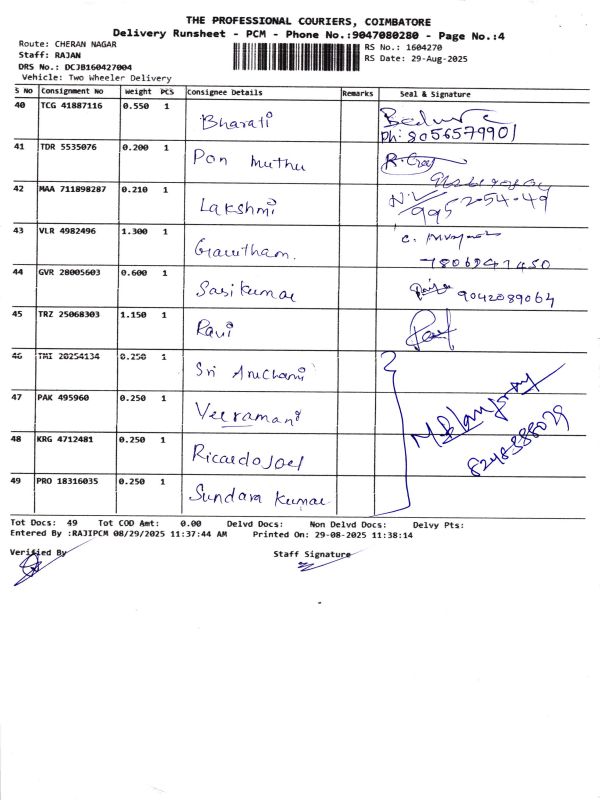 THE PROFESSIONAL COURIERS, COIMBATORE
Delivery Runsheet - PCM - Phone No.:9047080280 - Page No.:4
Route: CHERAN NAGAR
RS No.: 1604270
Staff: RAJAN
RS Date: 29-Aug-2025
DRS No.: DCJB160427004
Vehicle: Two Wheeler Delivery
S No Consignment No Weight PCS Consignee Details Remarks Seal & Signature
40 TCG 41887116 0.550 1 Bharati
Ph: 8056579901
41 TDR 5535076 0.200 1 Pon Muthu
42 MAA 711898287 0.210 1 Lakshmi N.V 9952-54-49
43 VLR 4982496 1.300 1 Gowtham.
7806947450
44 GVR 28005603 0.600 1 Sasikumar 9042089064
45 TRZ 25068303 1.150 1 Ravi
46 TMI 20254134 0.250 1 Sri Aruchami
47 PAK 495960 0.250 1 Veeramani
48 KRG 4712481 0.250 1 Ricardo Joel 8248388029
49 PRO 18316035 0.250 1 Sundara Kumar
Tot Docs: 49 Tot COD Amt: 0.00 Delvd Docs: Non Delvd Docs: Delvy Pts:
Entered By :RAJIPCM 08/29/2025 11:37:44 AM Printed On: 29-08-2025 11:38:14
Verified By Staff Signature